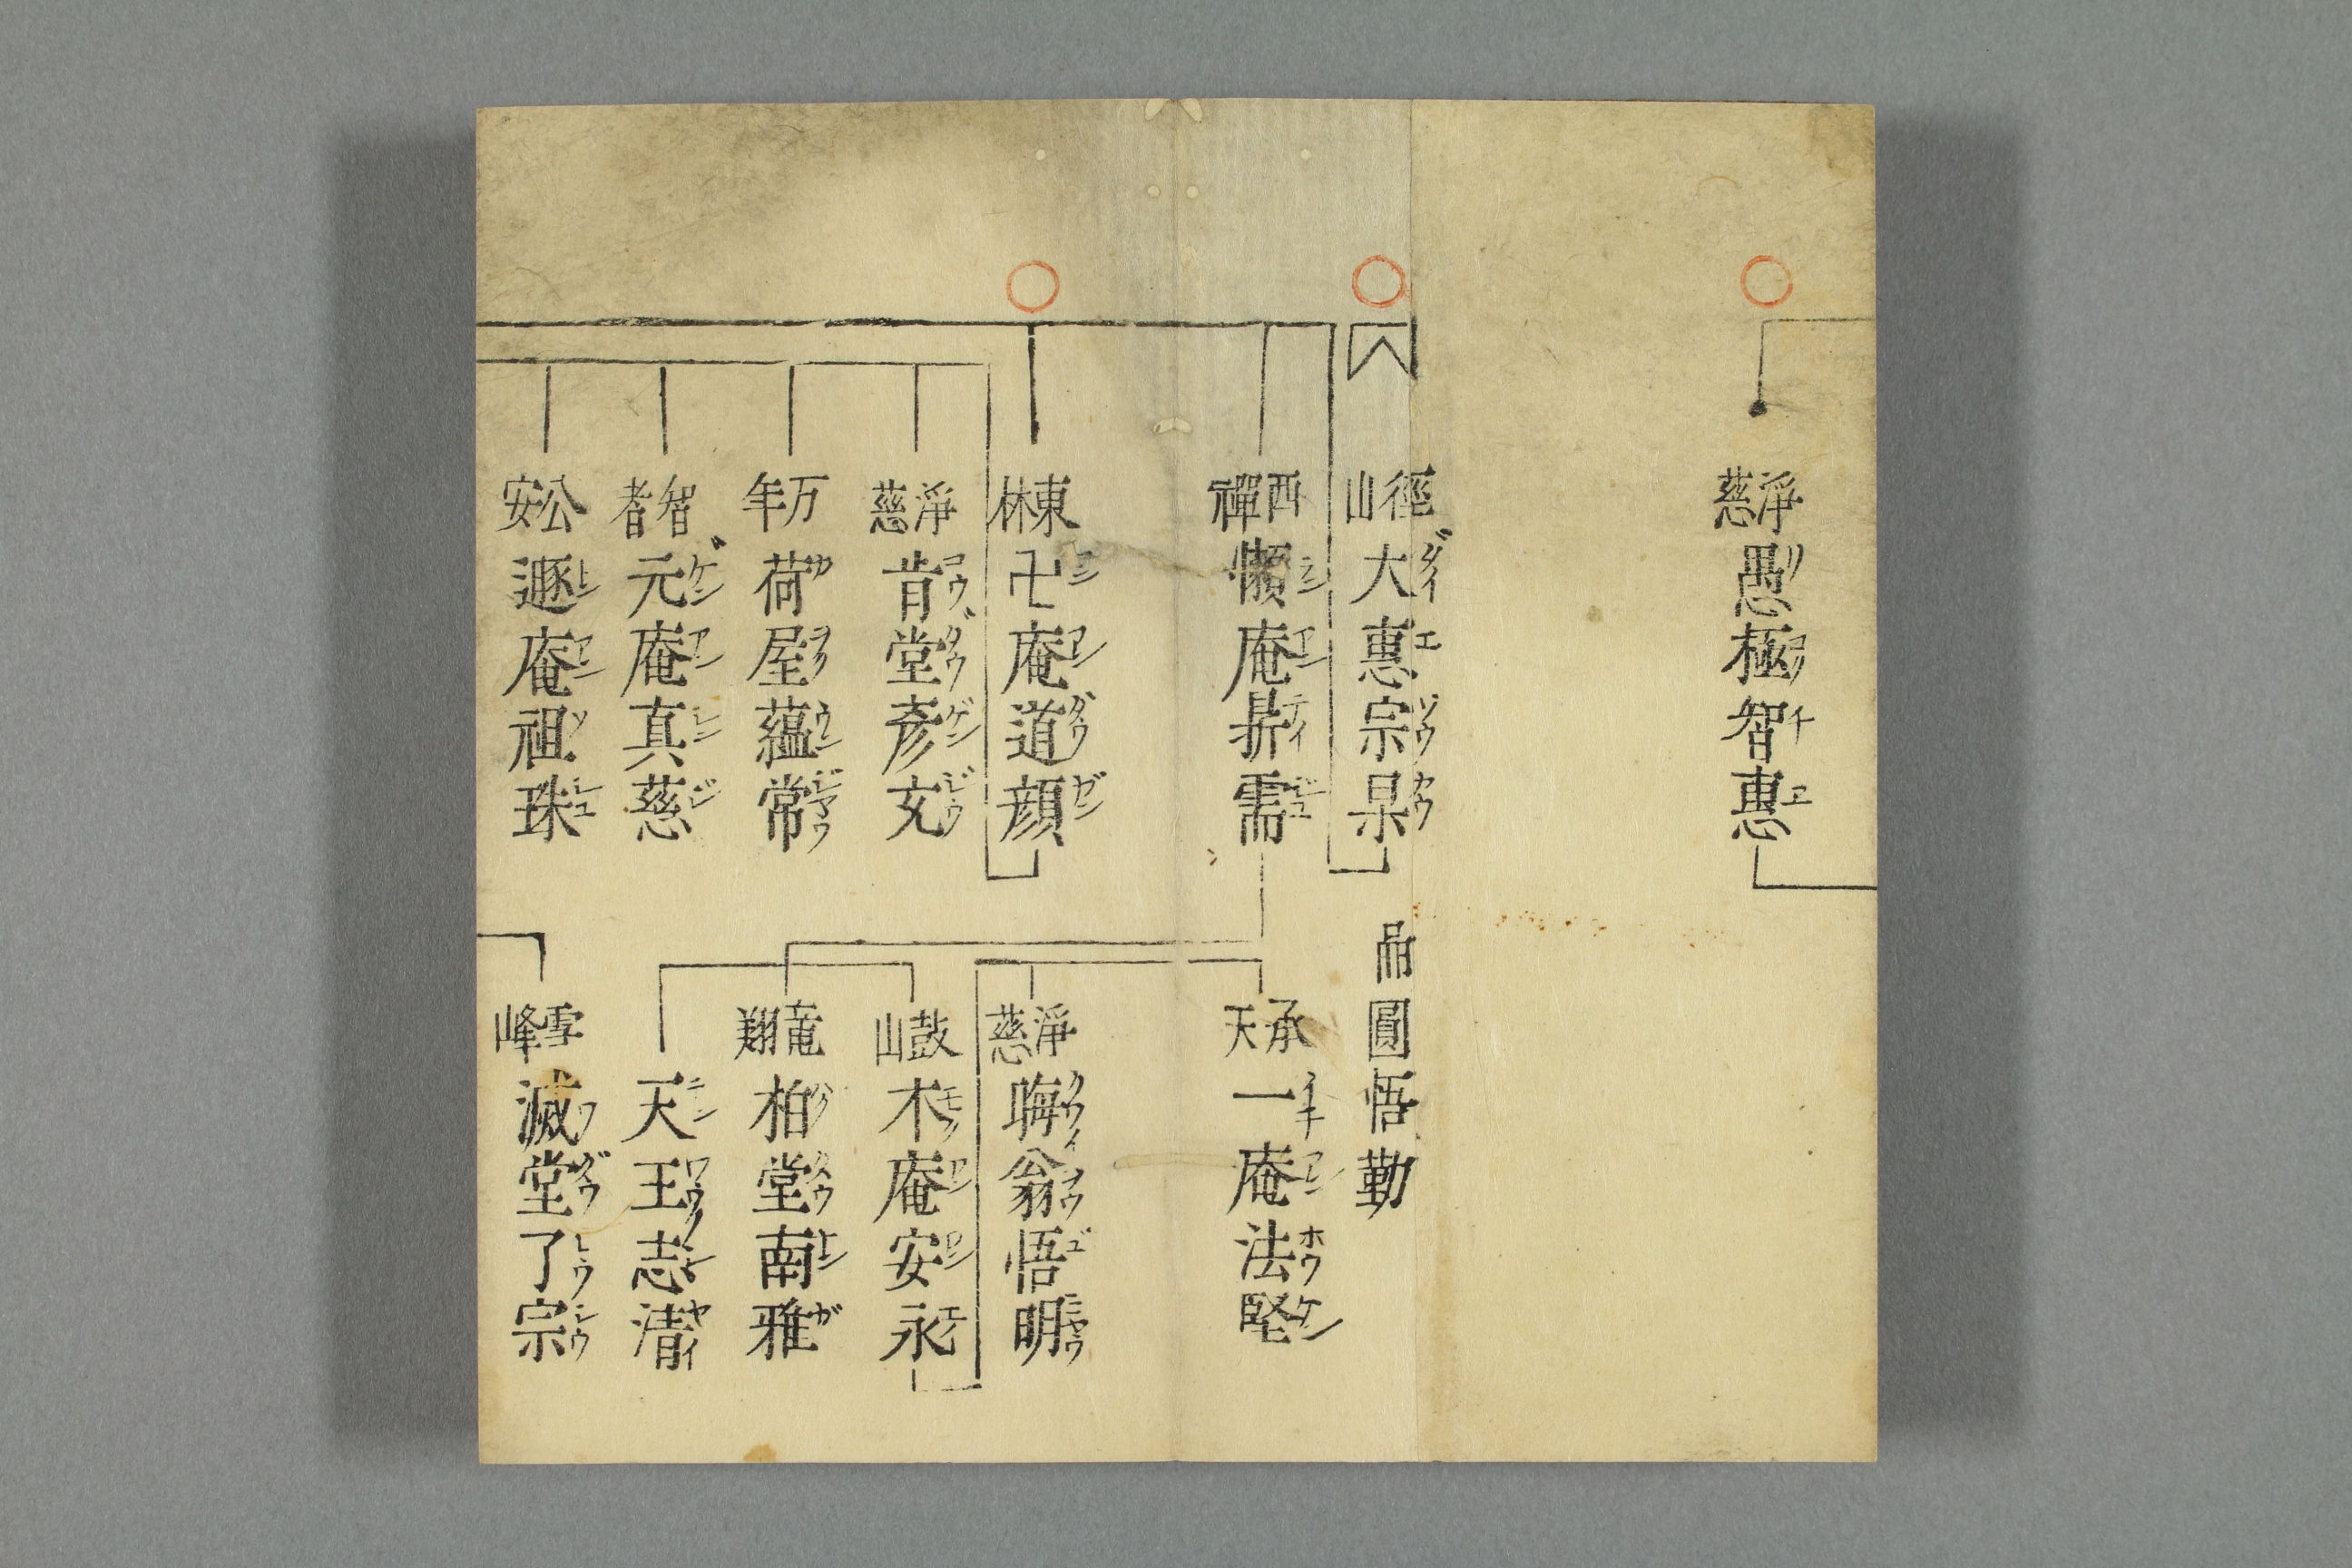 淨慈 愚極智惠
徑山 大惠宗杲
嗣圓悟勤
西禪 懶庵鼎需
東林 卍庵道顔
淨慈 肯堂彦充
万年 荷屋蘊常
智者 元庵真慈
公安 遯庵祖珠
承天 一庵法堅
淨慈 晦翁悟明
鼓山 木庵安永
竜翔 柏堂南雅
天王志清
雪峰 滅堂了宗